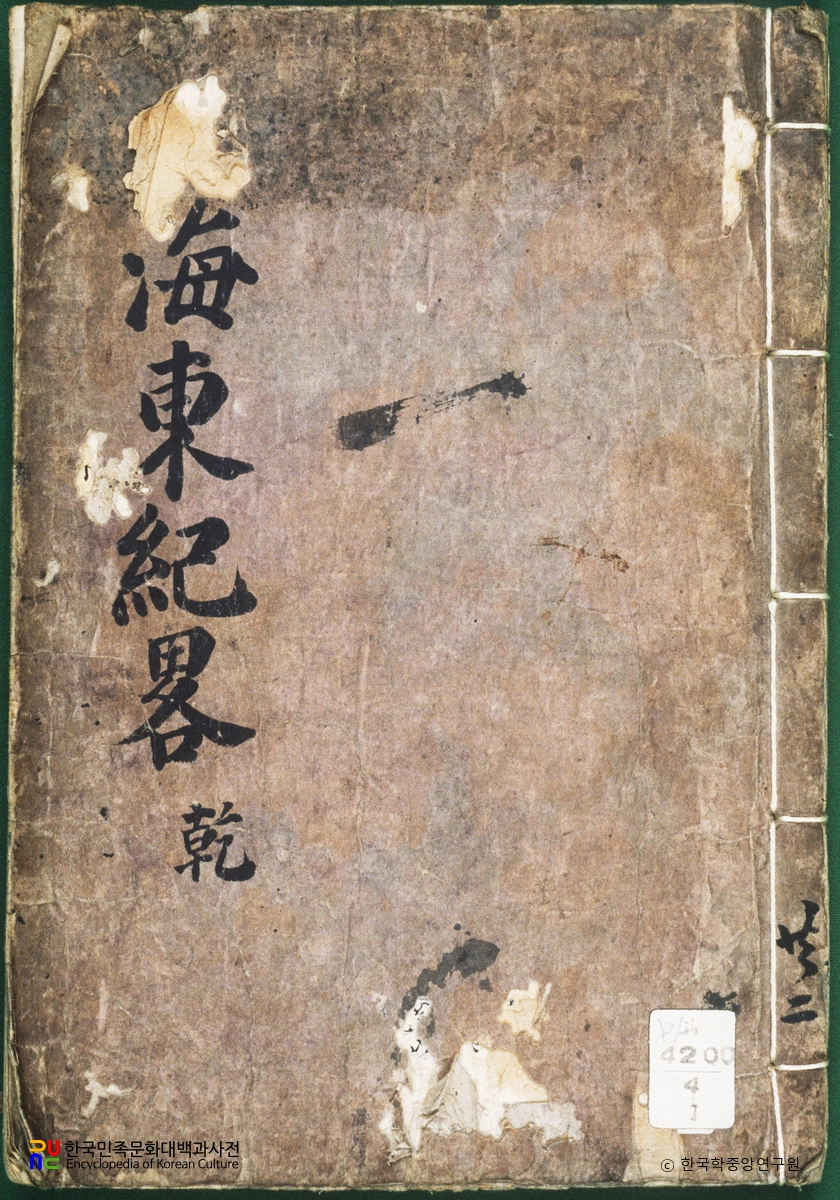 海東紀畧 乾
一
共二
4200
4
1
한국민족문화대백과사전
Encyclopedia of Korean Culture
ⓒ 한국학중앙연구원